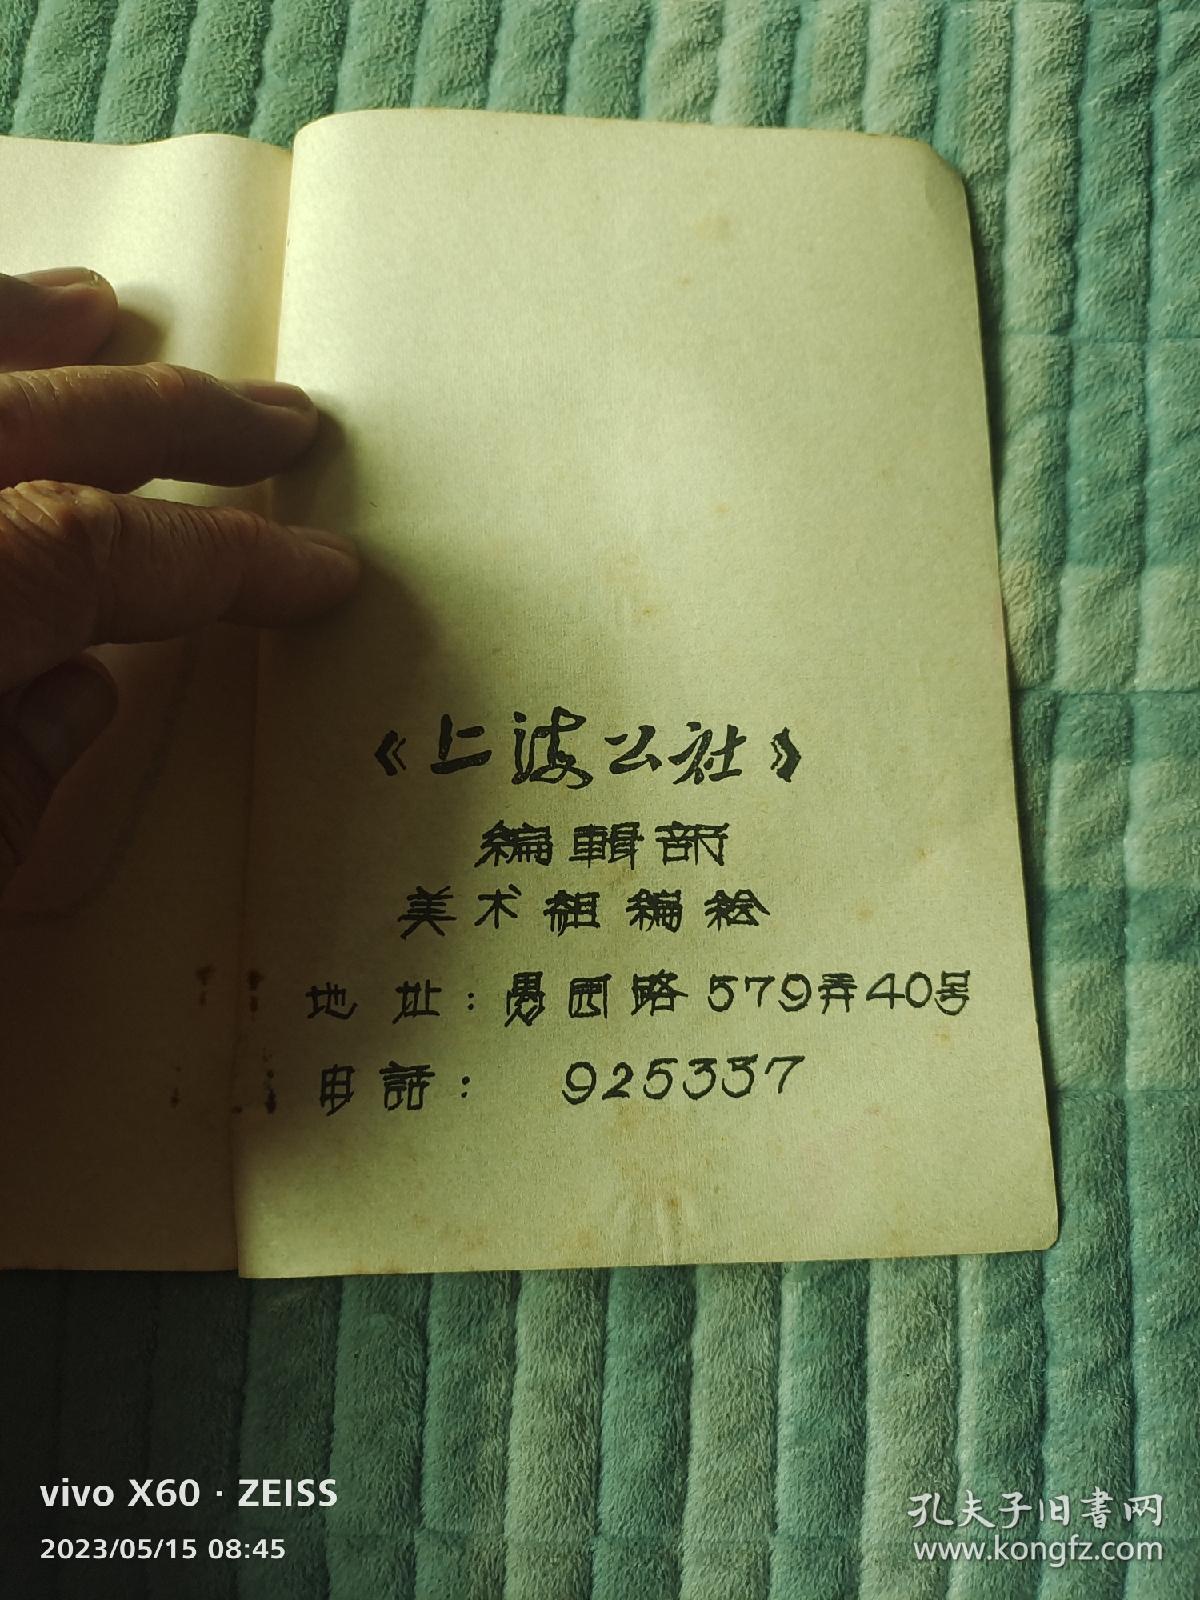 《上海公社》
編輯部
美术組編绘
地 址：愚园路579弄40号
电話： 925337
vivo X60 · ZEISS
2023/05/15 08:45
孔夫子旧書网
www.kongfz.com